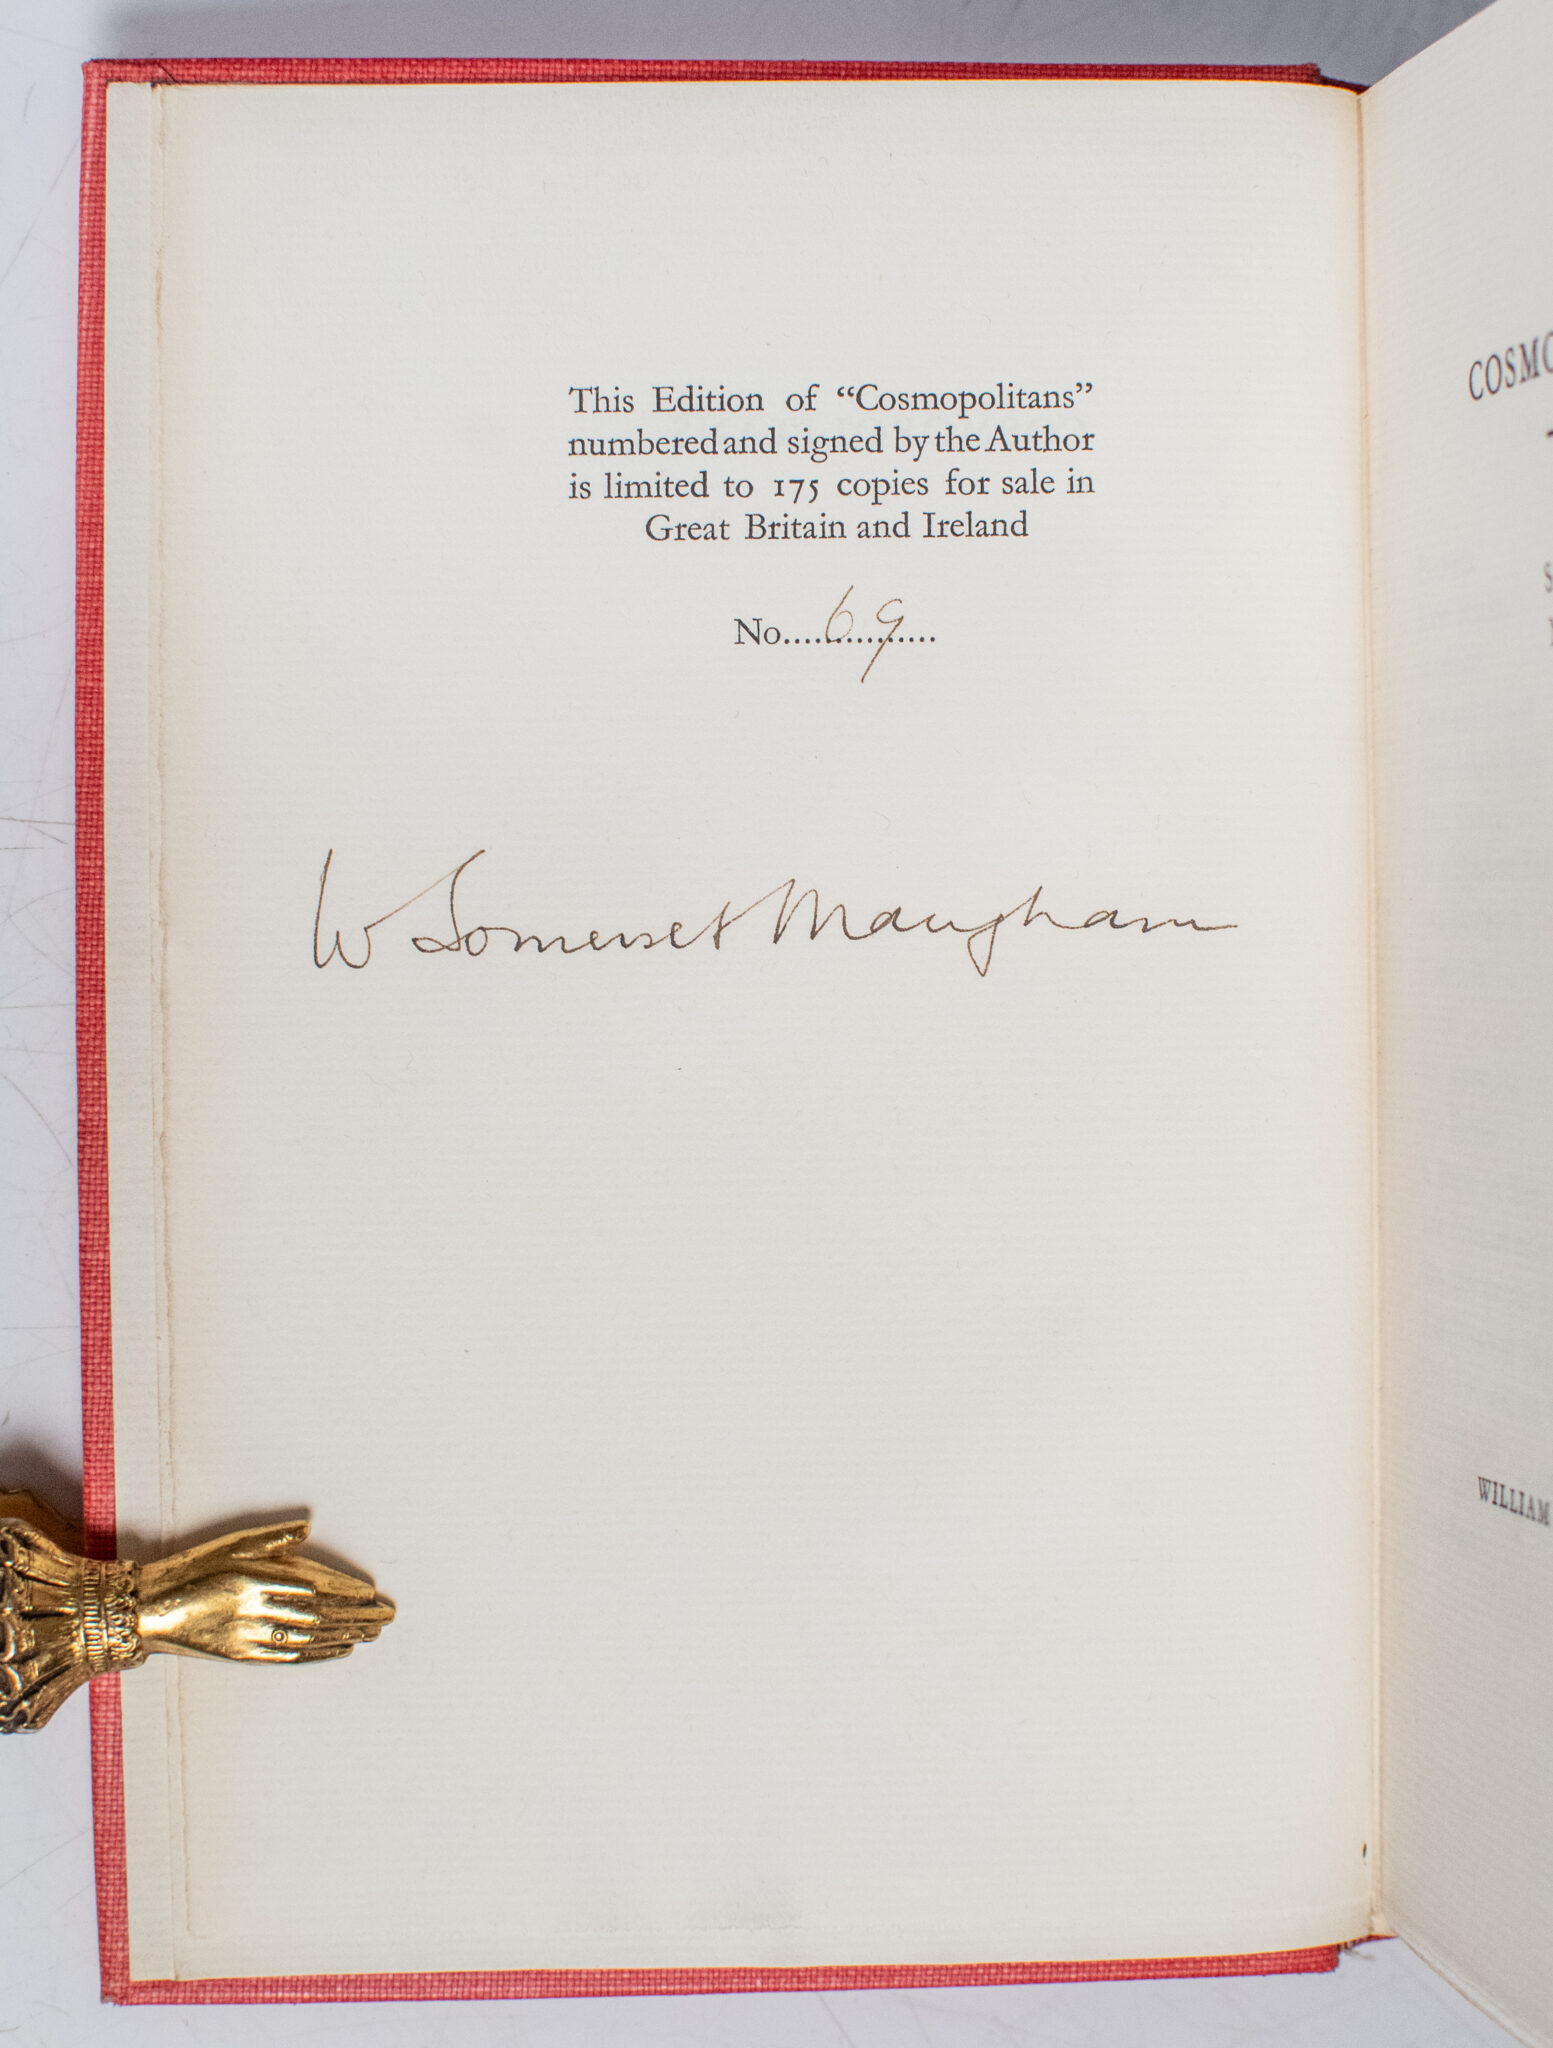 This Edition of “Cosmopolitans”
numbered and signed by the Author
is limited to 175 copies for sale in
Great Britain and Ireland
No....69........
W Somerset Maugham
WILLIAM